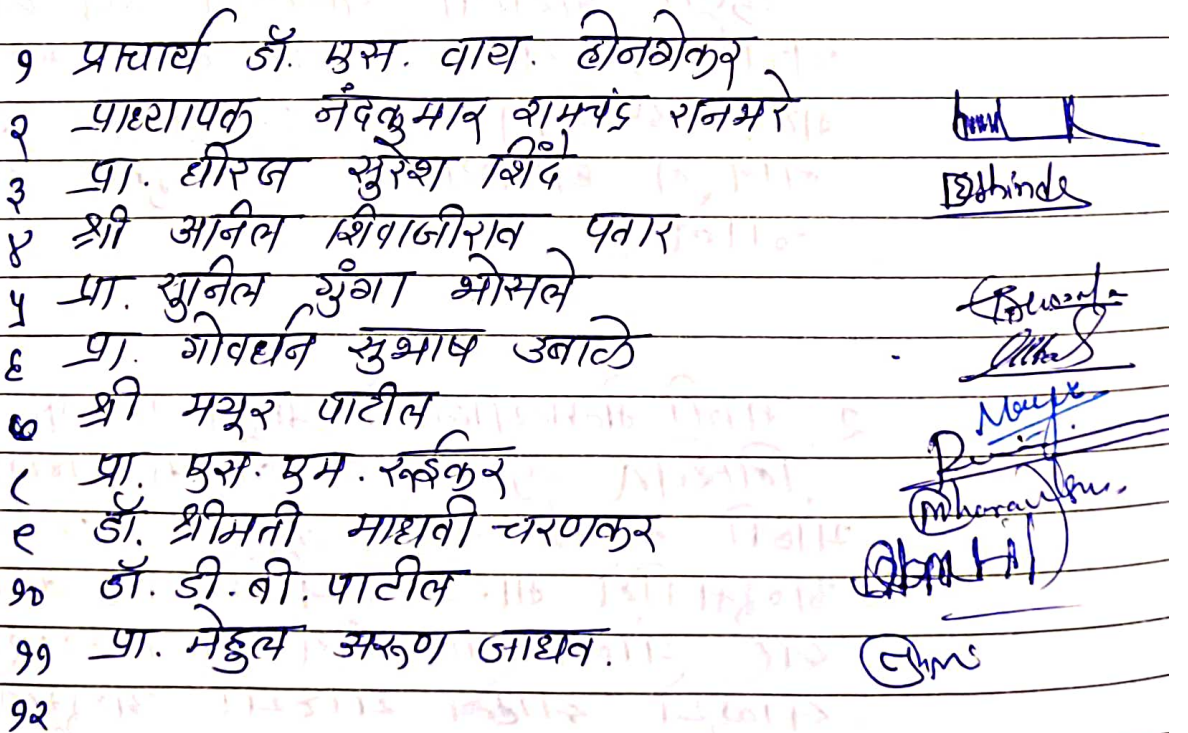 १ प्राचार्य डॉ. एस. वाय. होनगेकर
२ प्राध्यापक नंदकुमार रामचंद्र रानभरे
३ प्रा. धीरज सुरेश शिंदे Dshinde
४ श्री अनिल शिवाजीराव पवार
५ प्रा. सुनिल गुंगा भोसले
६ प्रा. गोवर्धन सुभाष उबाळे
७ श्री मयूर पाटील
८ प्रा. एस. एम. रुईकर
९ डॉ. श्रीमती माधवी चरणकर
१० डॉ. डी. बी. पाटील
११ प्रा. मेहुल अरुण जाधव.
१२